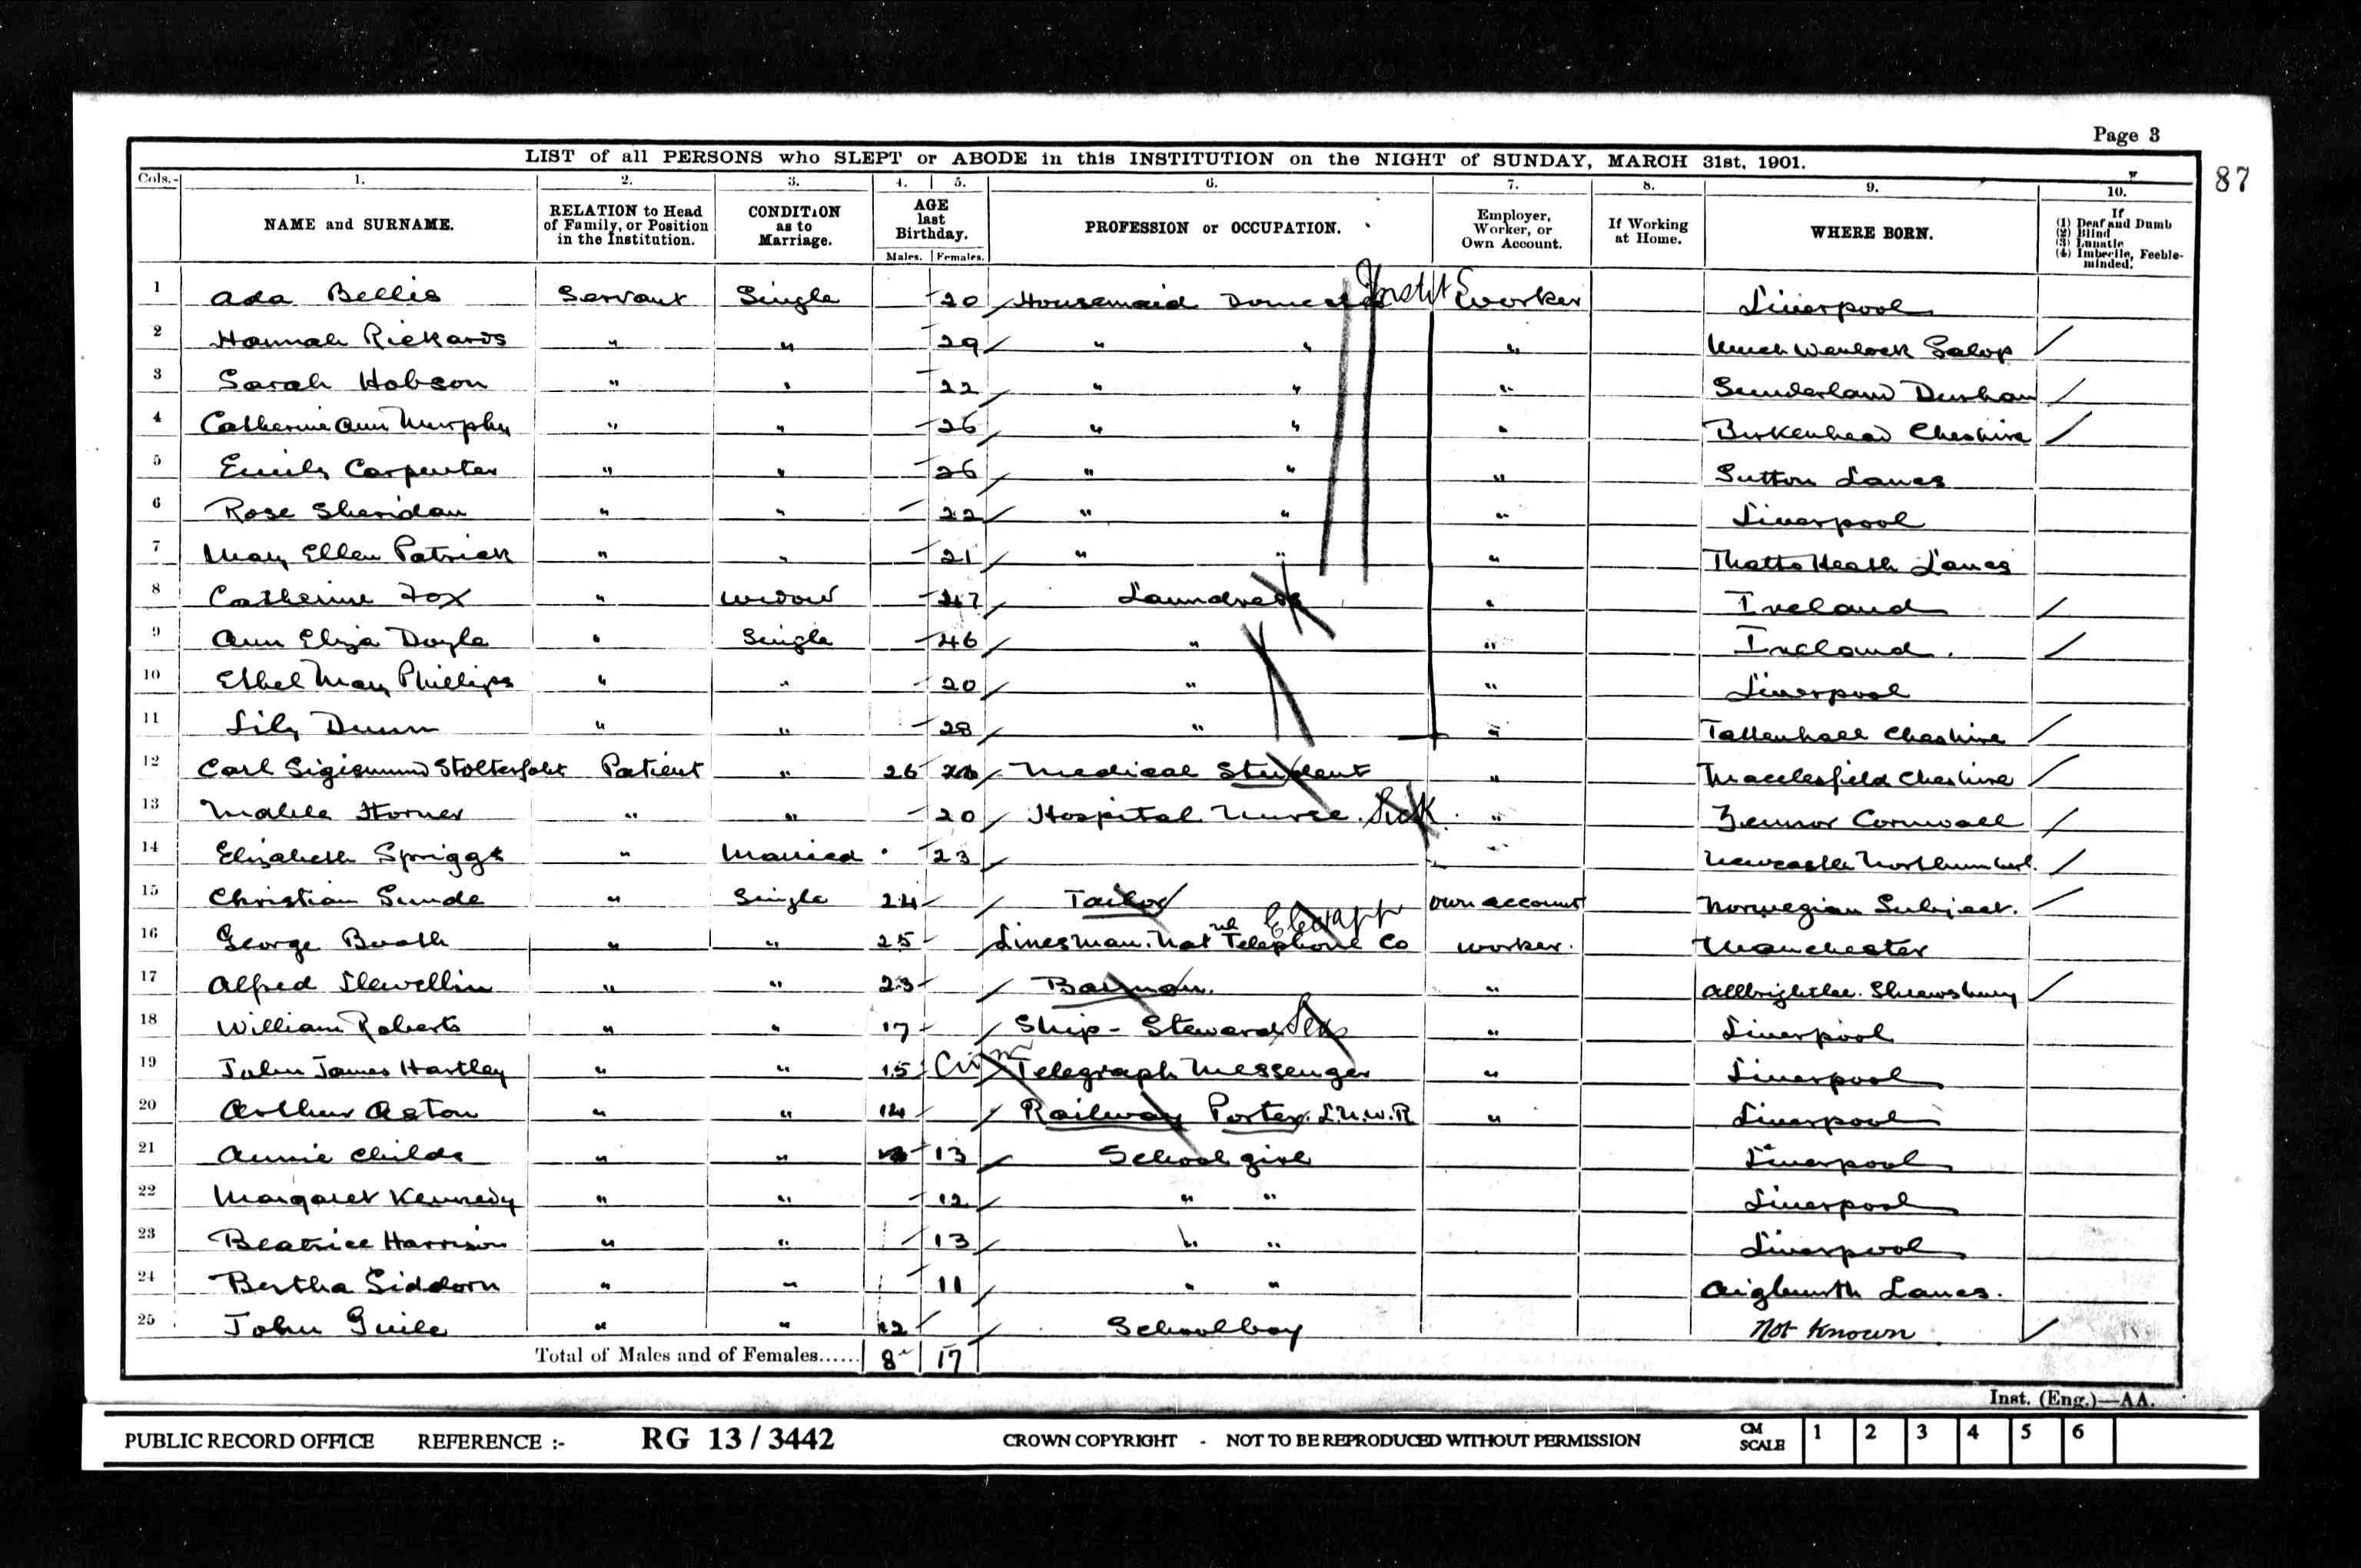 Page 3
87
LIST of all PERSONS who SLEPT or ABODE in this INSTITUTION on the NIGHT of SUNDAY, MARCH 31st, 1901.
Cols.- 1. 2. 3. 4. 5. 6. 7. 8. 9. 10.
NAME and SURNAME. RELATION to Head of Family, or Position in the Institution. CONDITION as to Marriage. AGE last Birthday. Males. Females. PROFESSION or OCCUPATION. Employer, Worker, or Own Account. If Working at Home. WHERE BORN. If (1) Deaf and Dumb (2) Blind (3) Lunatic (4) Imbecile, Feeble-minded.
1 Ada Bellis Servant Single 20 Housemaid Domestic Instit Worker Liverpool
2 Hannah Rickards " " 29 " " " Much Wenlock Salop
3 Sarah Hobson " " 22 " " " Sunderland Durham
4 Catherine Ann Murphy " " 26 " " " Birkenhead Cheshire
5 Emily Carpenter " " 26 " " " Sutton Lancs
6 Rose Sheridan " " 22 " " " Liverpool
7 Mary Ellen Patrick " " 21 " " " Thatto Heath Lancs
8 Catherine Fox " Widow 47 Laundress " Ireland
9 Ann Eliza Doyle " Single 46 " " Ireland.
10 Ethel May Phillips " " 20 " " Liverpool
11 Lily Dunn " " 28 " " Tattenhall Cheshire
12 Carl Sigismund Stolterfoht Patient " 26 Medical Student " Macclesfield Cheshire
13 Horner " " 20 Hospital Nurse. Sick " Zennor Cornwall
14 Elizabeth Spriggs " Married 23 " Newcastle Northumberl.
15 Christian Sunde " Single 24 Tailor own account Norwegian Subject.
16 George Booth " " 25 Linesman. Natnl Telephone Co worker. Manchester
17 Alfred Llewellin " " 23 Barman. " Allbrightlee. Shrewsbury
18 William Roberts " " 17 Ship - Steward Sea " Liverpool
19 John James Hartley " " 15 Telegraph Messenger " Liverpool
20 Arthur Aston " " 14 Railway Porter. L.N.W.R " Liverpool
21 Annie Childs " " 13 School girl Liverpool
22 Margaret Kennedy " " 12 " " Liverpool
23 Beatrice Harrison " " 13 " " Liverpool
24 Bertha Siddorn " " 11 " " Aigburth Lancs.
25 John Guile " " 12 Schoolboy Not Known
Total of Males and of Females...... 8 17
Inst. (Eng.)—AA.
PUBLIC RECORD OFFICE REFERENCE :- RG 13 / 3442 CROWN COPYRIGHT - NOT TO BE REPRODUCED WITHOUT PERMISSION CM SCALE 1 2 3 4 5 6